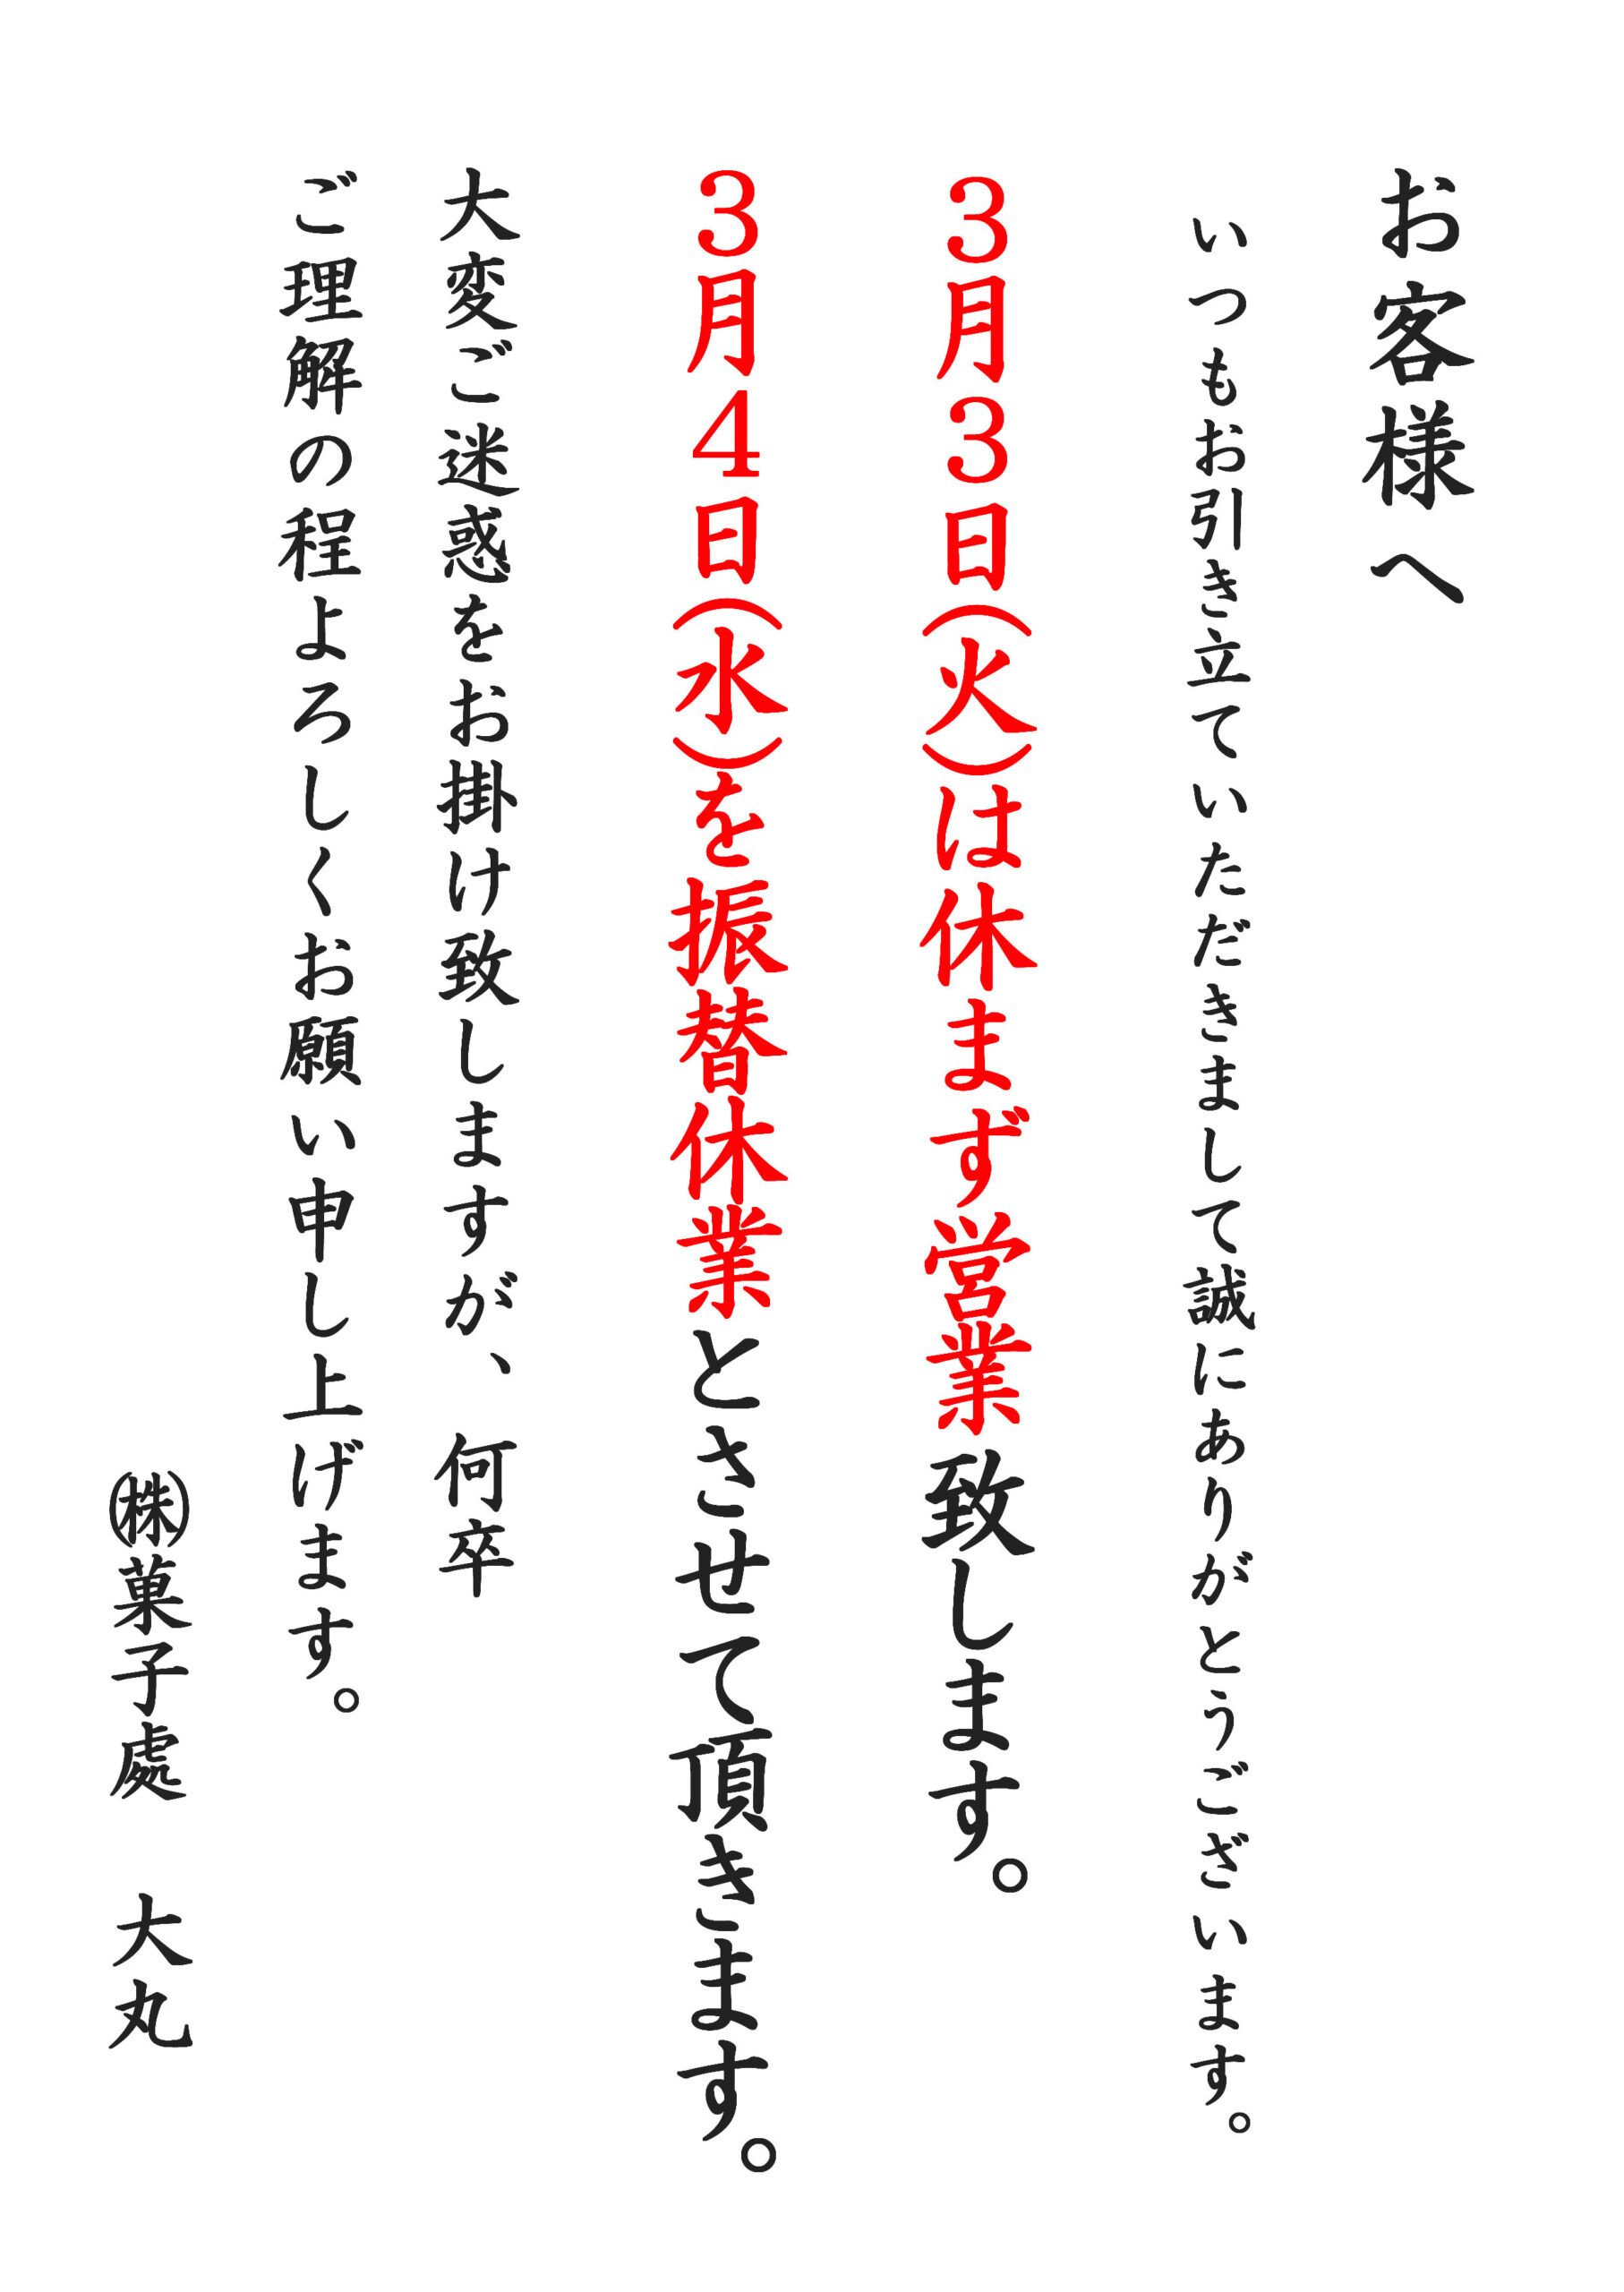 お客様へ
いつもお引き立ていただきまして誠にありがとうございます。
3月3日(火)は休まず営業致します。
3月4日(水)を振替休業とさせて頂きます。
大変ご迷惑をお掛け致しますが、何卒
ご理解の程よろしくお願い申し上げます。
㈱菓子處　大丸